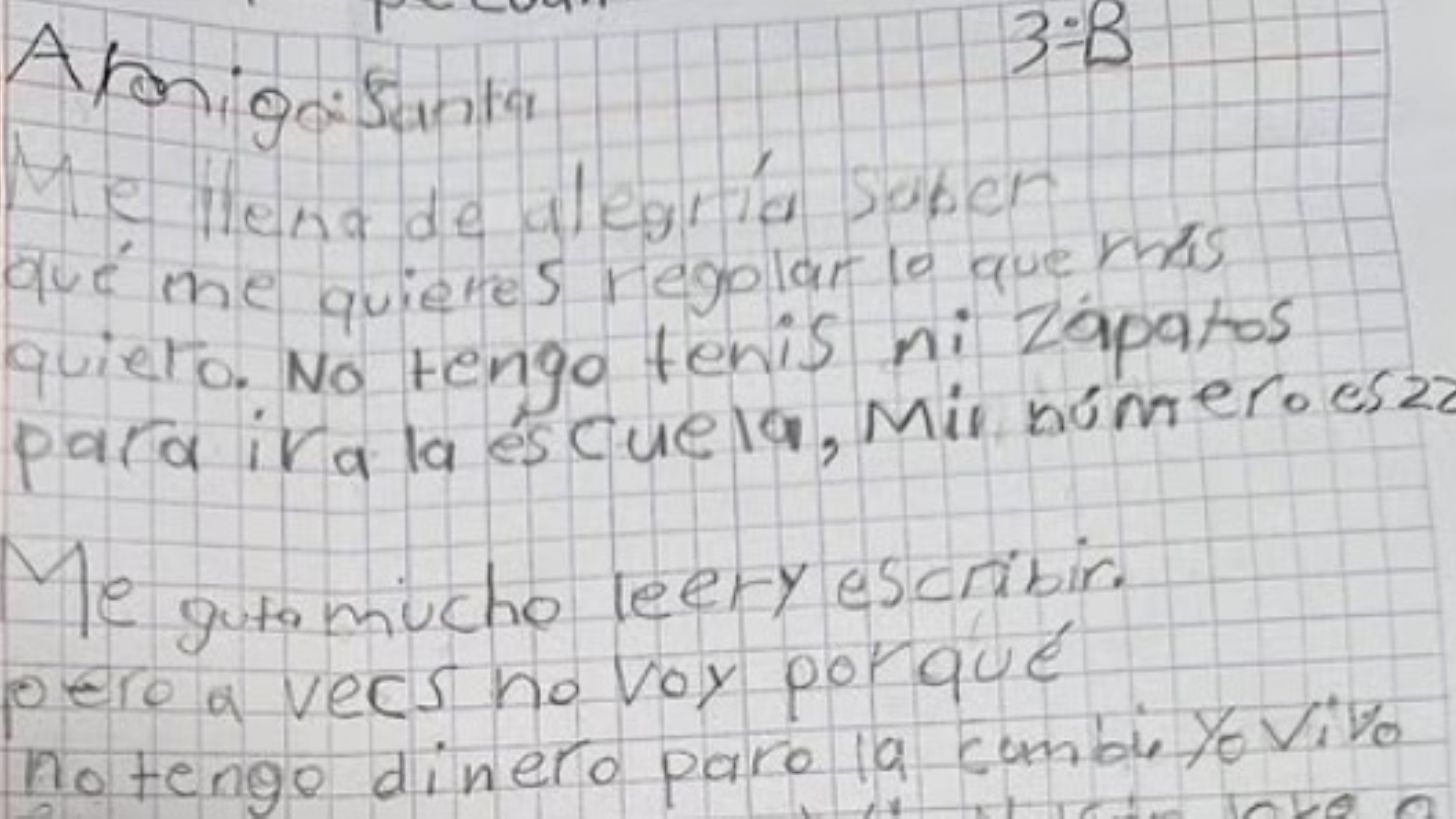 3-B
Amigo Santa
Me llena de alegría saber
qué me quieres regalar lo que más
quiero. No tengo tenis ni zápatos
para ir a la éscuela, Mi número es 22
Me guta mucho leer y escribir.
pero a vecs no voy porqué
no tengo dinero para la cambi yo vivo